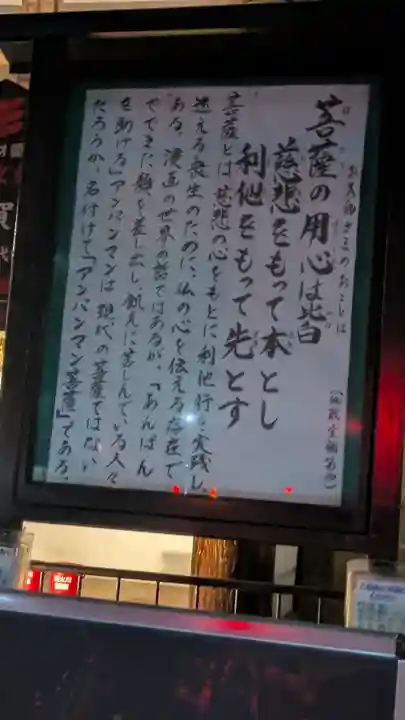 お大師さまのおことば
菩薩の用心は皆
慈悲をもって本とし
利他をもって先とす
菩薩とは慈悲の心をもとに利他行を実践し、
迷える衆生のために、仏の心を伝える存在で
ある。漫画の世界の話ではあるが、「あんぱん
でできた顔を差し出し、飢えに苦しんでいる人々
を助ける」アンパンマンは現代の菩薩ではない
だろうか。名付けて「アンパンマン菩薩」である。